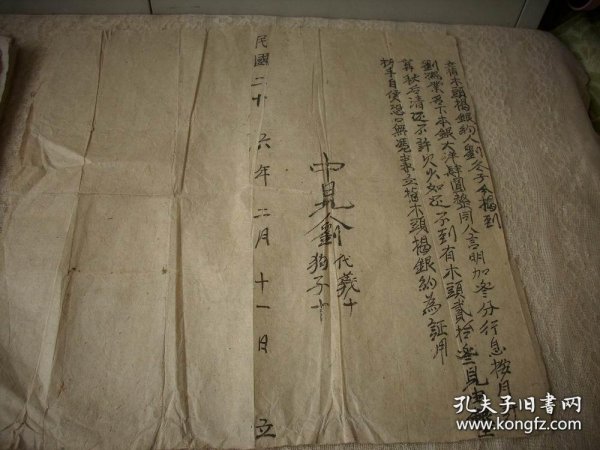 立指木頭揭銀約人劉冬子今揭到
劉鴻業名下本銀大洋肆圓整同人言明加叁分行息按月
算秋后清还不許欠少如还不到有木頭貳拾叁見
恐口無憑專立指木頭揭銀約為証用
中見人劉代義十
狗子十
民國二十六年二月十一日 立
孔夫子旧书网
www.kongfz.com